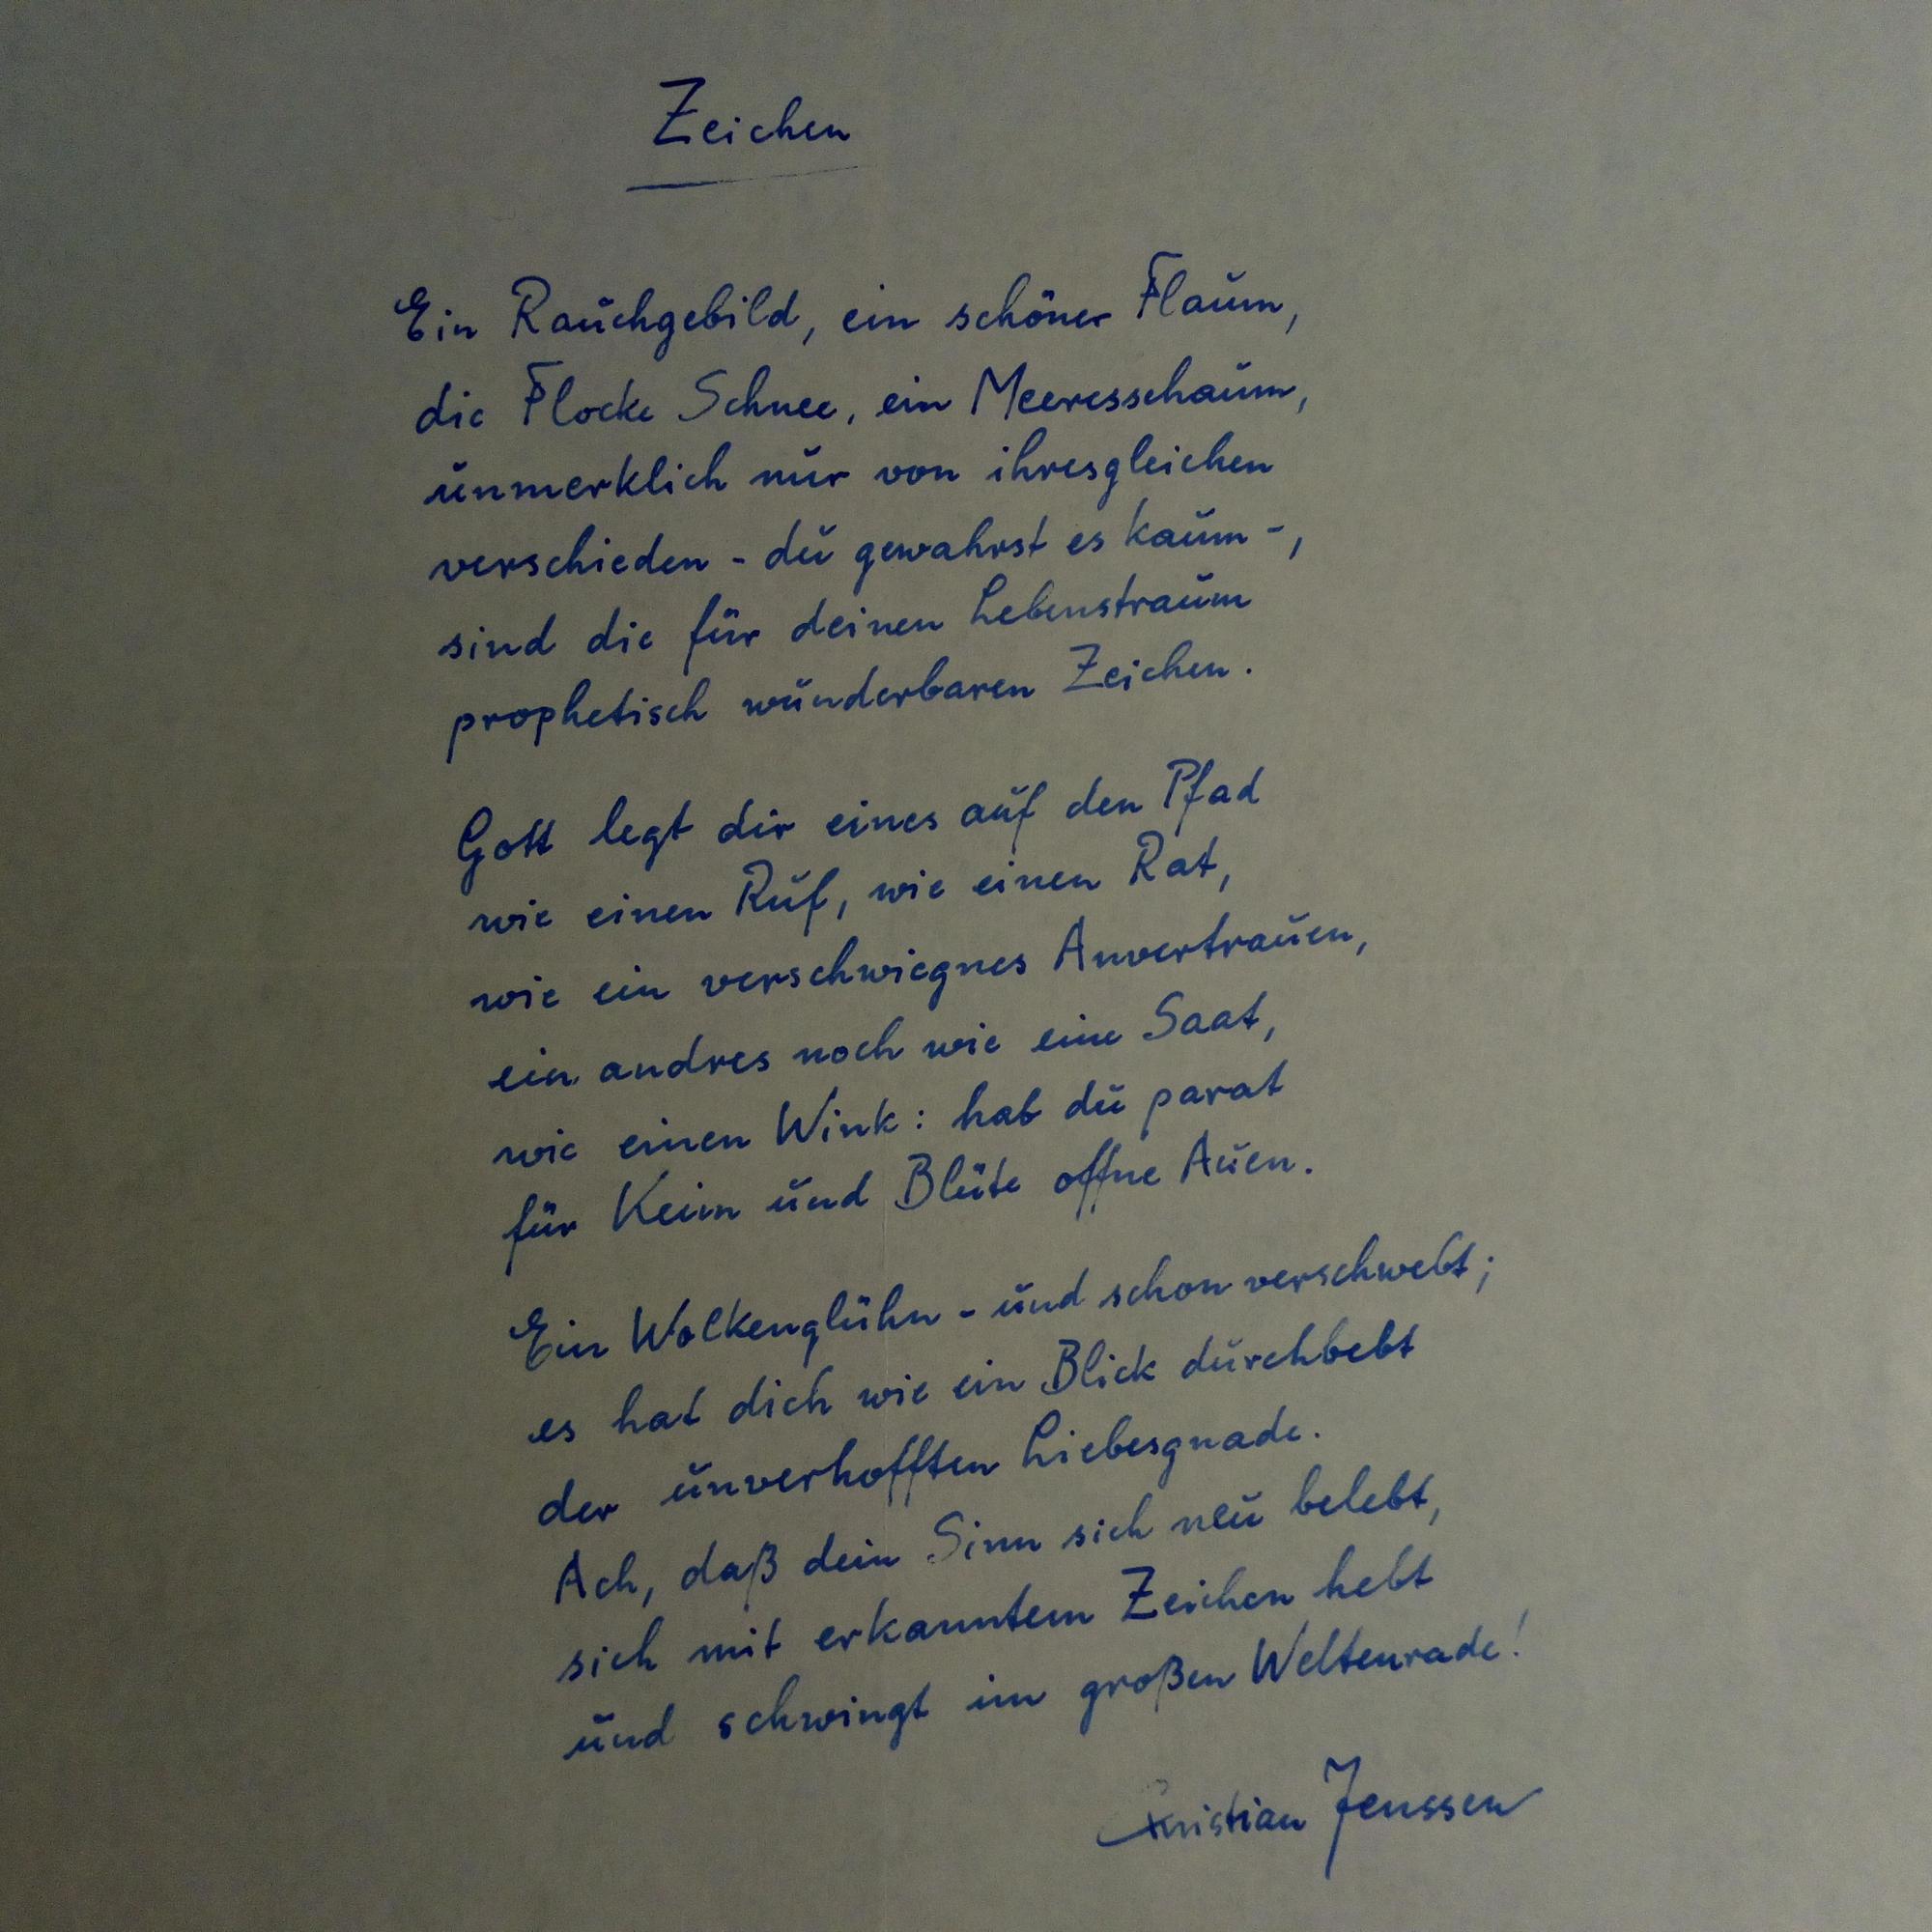 Zeichen
Ein Rauchgebild, ein schöner Flaum,
die Flocke Schnee, ein Meeresschaum,
unmerklich nur von ihresgleichen
verschieden - du gewahrst es kaum -,
sind die für deinen Lebenstraum
prophetisch wunderbaren Zeichen.
Gott legt dir eines auf den Pfad
wie einen Ruf, wie einen Rat,
wie ein verschwiegnes Anvertrauen,
ein andres noch wie eine Saat,
wie einen Wink: hab du parat
für Keim und Blüte offne Auen.
Ein Wolkenglühn - und schon verschwebt;
es hat dich wie ein Blick durchbebt
der unverhofften Liebesgnade.
Ach, daß dein Sinn sich neu belebt,
sich mit erkanntem Zeichen hebt
und schwingt im großen Weltenrade!
Christian Jenssen